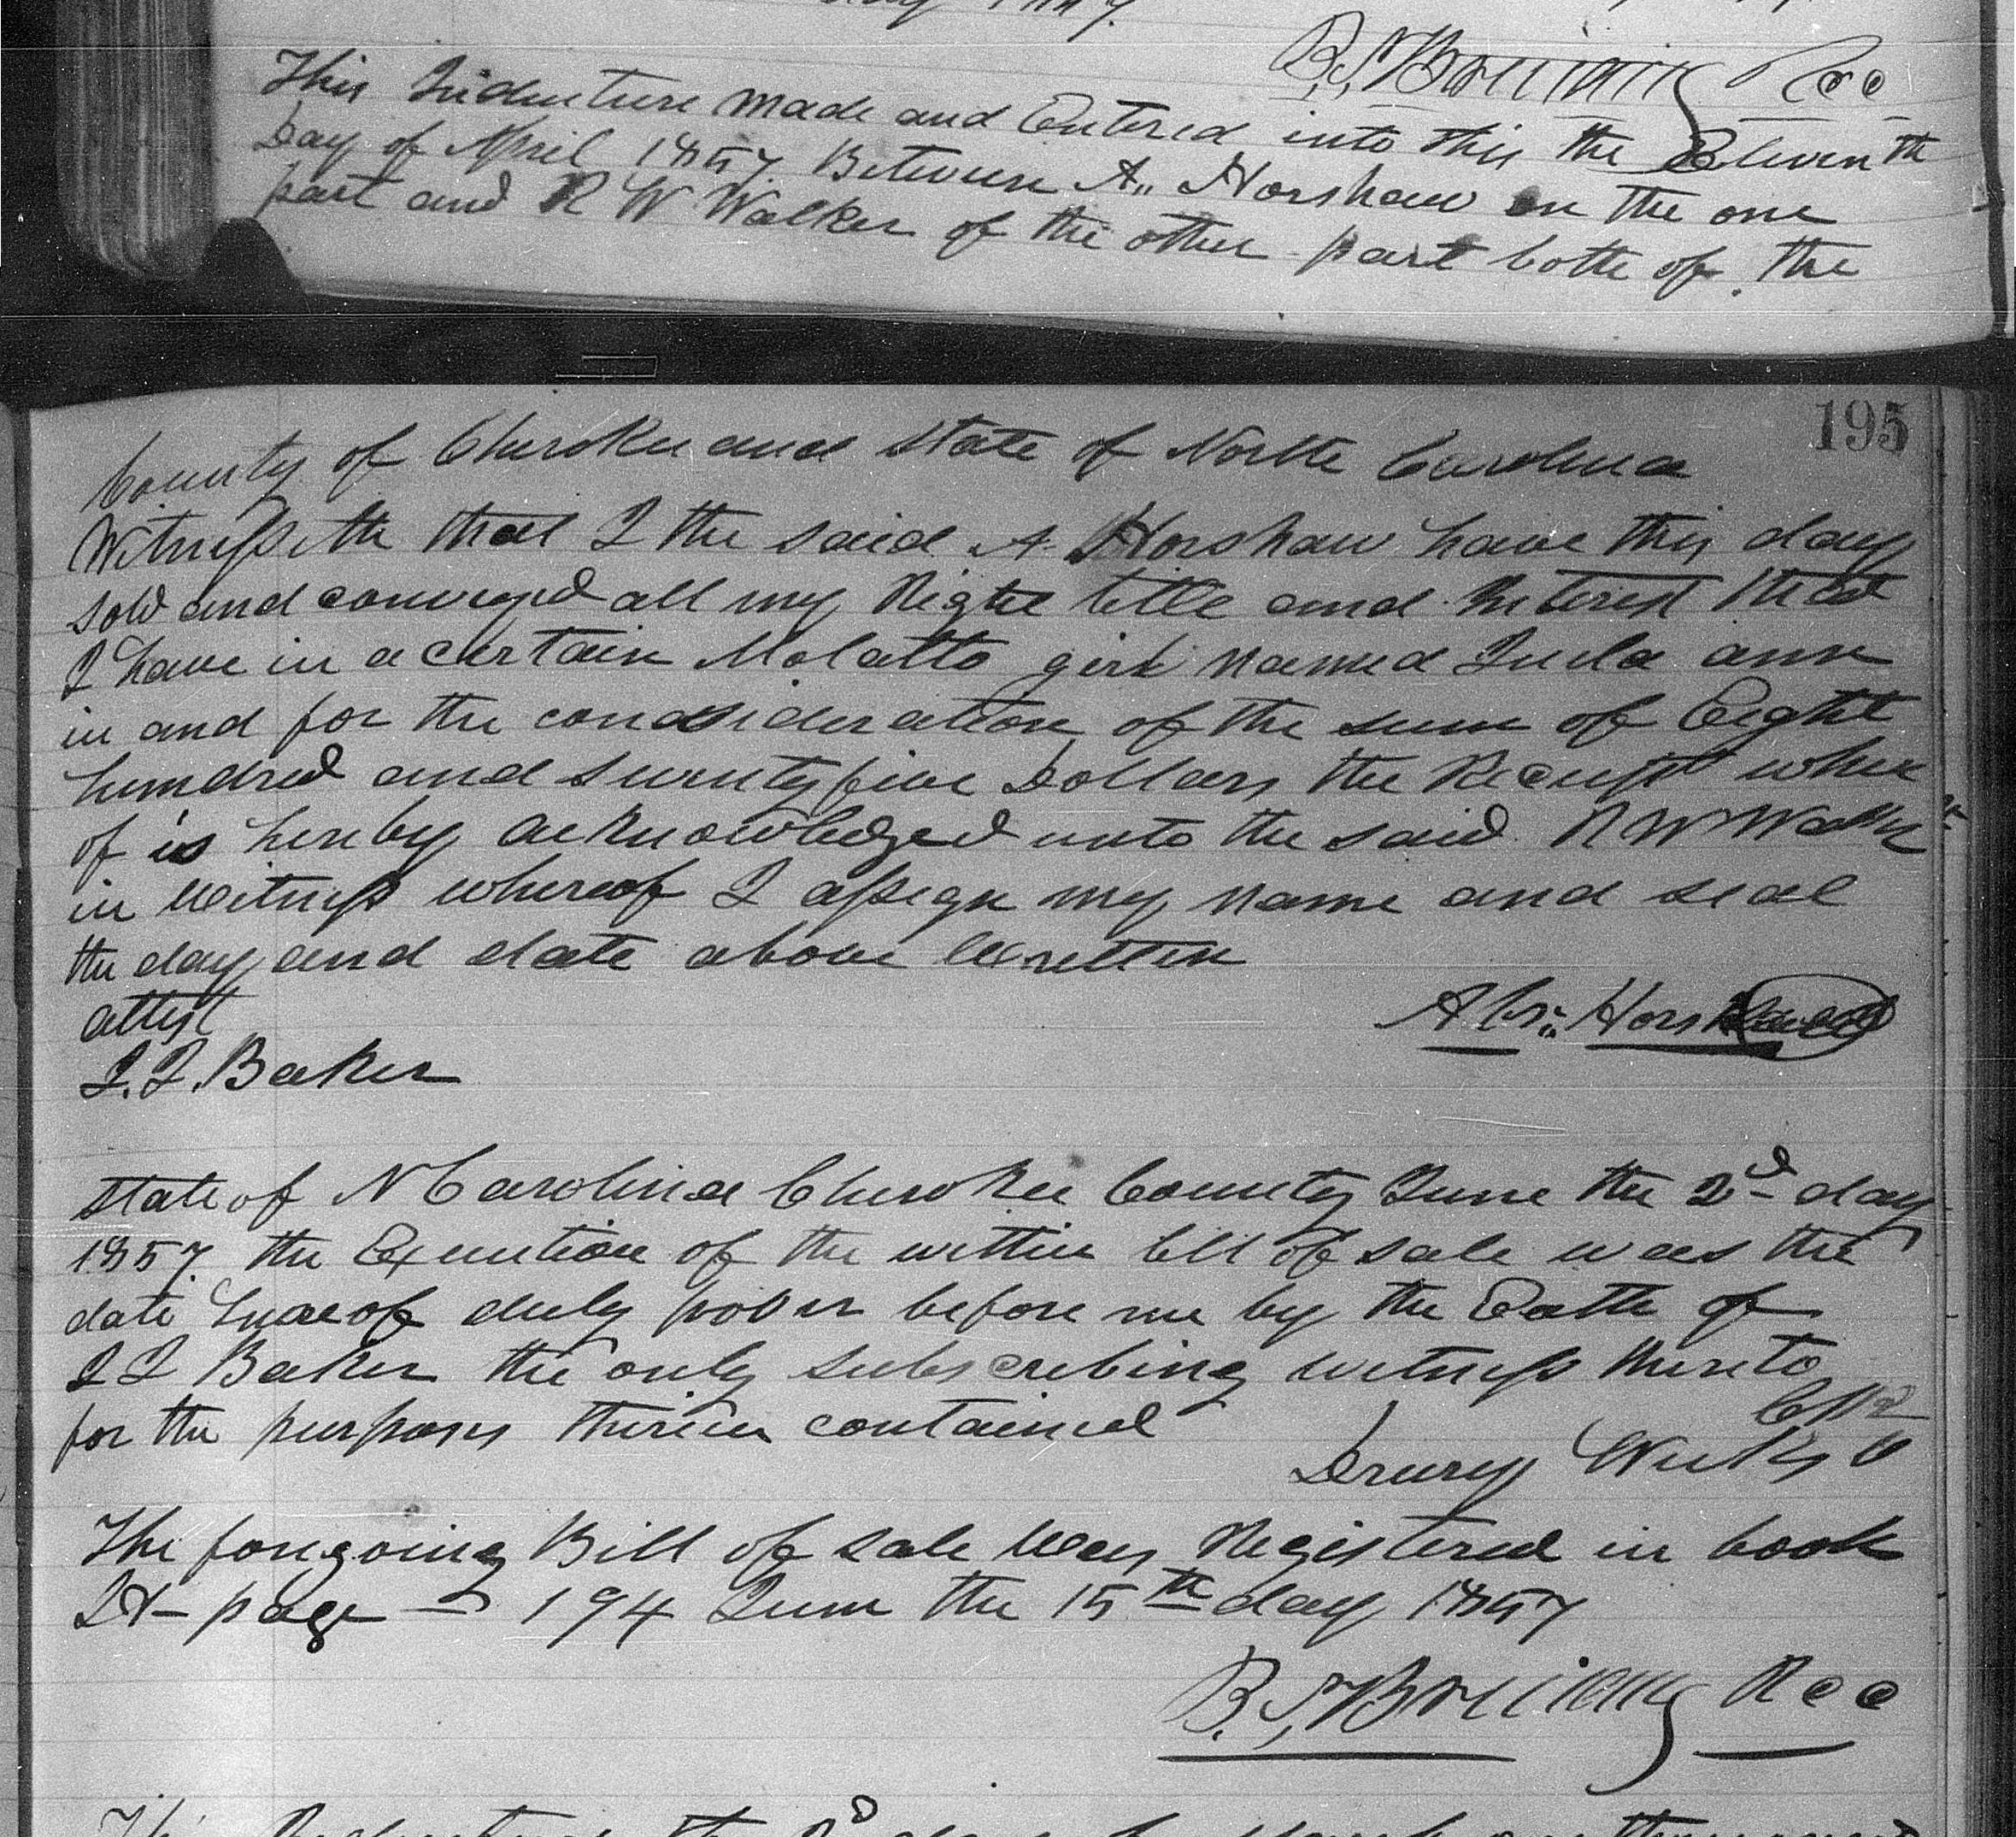 B. S. Brittain Reg
This Indenture made and Entered into this the Eleventh
Day of April 1857. Between A,, Horshaw on the one
part and R W Walker of the other part both of the
195
County of Cherokee and State of North Carolina
Witnesseth that I the said A. Horshaw have this day
sold and conveyed all my Right title and Interest that
I have in a certain Molatto girl named Jula ann
in and for the condsideration of the sum of Eight
hundred and seventy five Dollars the Receipt where
of is hereby acknowledged unto the said R W Walker
in witness whereof I assign my name and seal
the day and date above written
attest
A Horshaw seal
J. J. Baker
State of N Carolina Cherokee County June the 2d day
1857. the Execution of the within bill of sale was the
date hereof duly proven before me by the Oath of
J J Baker the only subscribing witness thereto
for the purposes therein contained
Drury Weeks
The foregoing Bill of sale was Registered in book
page 194 June the 15th day 1857
B. S. Brittain Reg